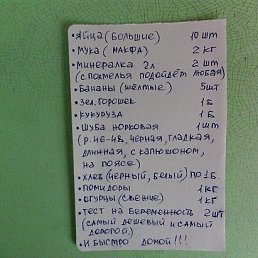 • ЯЙЦА (БОЛЬШИЕ) 10 ШТ
• МУКА (МАКФА) 2 КГ
• МИНЕРАЛКА 2Л 2 ШТ
(С ПОХМЕЛЬЯ ПОДОЙДЁТ ЛЮБАЯ)
• БАНАНЫ (ЖЁЛТЫЕ) 5 ШТ
• ЗЕЛ. ГОРОШЕК 1 Б
• КУКУРУЗА 1 Б.
• ШУБА НОРКОВАЯ 1 ШТ
(Р. 46-48, ЧЁРНАЯ, ГЛАДКАЯ,
ДЛИННАЯ, С КАПЮШОНОМ,
НА ПОЯСЕ)
• ХЛЕБ (ЧЁРНЫЙ, БЕЛЫЙ) ПО 1 Б.
• ПОМИДОРЫ 1 КГ
• ОГУРЦЫ (СВЕЖИЕ) 1 КГ
• ТЕСТ НА БЕРЕМЕННОСТЬ 2 ШТ
(САМЫЙ ДЕШЕВЫЙ И САМЫЙ
ДОРОГОЙ)
• И БЫСТРО ДОМОЙ!!!